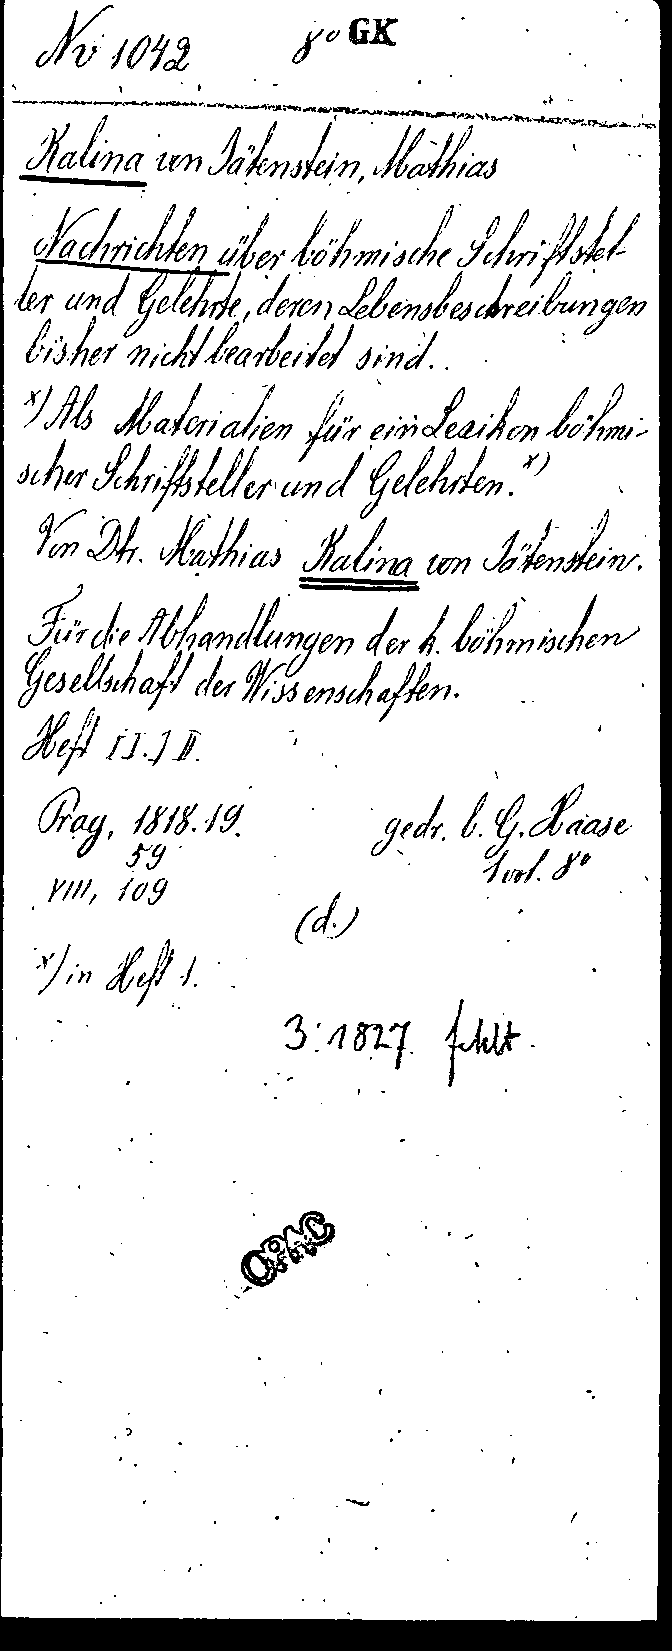 Nv 1042 8° GK
Kalina von Jätenstein, Mathias
Nachrichten über böhmische Schriftstel-
ler und Gelehrte, deren Lebensbeschreibungen
bisher nicht bearbeitet sind..
x) Als Materialien für ein Lexikon böhmi-
scher Schriftsteller und Gelehrten. x)
Von Dtr. Mathias Kalina von Jätenstein.
Für die Abhandlungen der k. böhmischen
Gesellschaft der Wissenschaften.
Heft I I. I II.
Prag, 1818.19. gedr. b. G. Haase
59 1 vol. 8°
VIII, 109
(d.)
x) in Heft 1.
3: 1827 fehlt.
OPAC